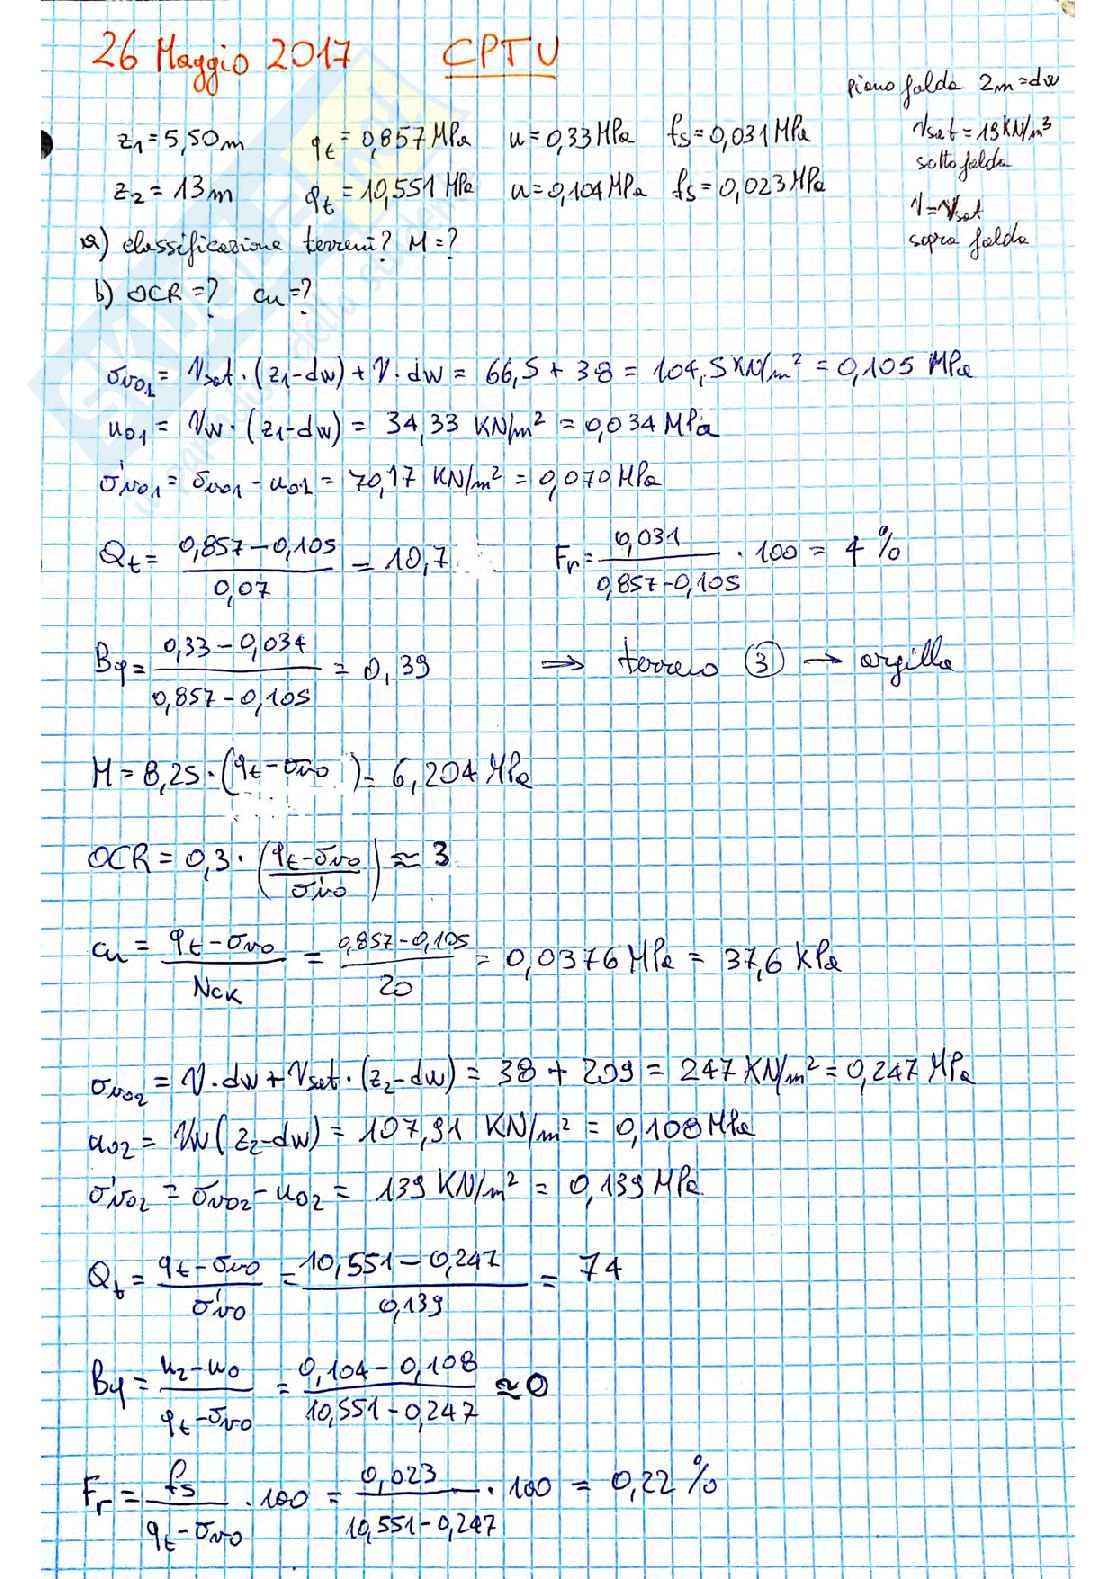 26 Maggio 2017 CPTU
piano falda 2m=dw
z₁=5,50m qt=0,857MPa u=0,33MPa fs=0,031MPa
γsat=19KN/m³
sotto falda
z₂=13m qt=10,551 MPa u=0,104MPa fs=0,023MPa
γ=γsat
sopra falda
a) classificazione terreni? M=?
b) OCR=? cu=?
σv0₁= γsat·(z₁-dw)+γ·dw= 66,5+38=104,5KN/m²=0,105 MPa
u0₁= γw·(z₁-dw)= 34,33 KN/m²=0,034MPa
σ'v0₁= σv0₁-u0₁=70,17 KN/m²=0,070MPa
Qt= (0,857-0,105)/0,07 = 10,7 Fr= 0,031/(0,857-0,105) ·100= 4%
Bq= (0,33-0,034)/(0,857-0,105) = 0,39 ⇒ terreno ③ → argilla
M=8,25·(qt-σv0)= 6,204MPa
OCR=0,3·((qt-σv0)/σ'v0)≈3
cu= (qt-σv0)/Nck = (0,857-0,105)/20 = 0,0376MPa= 37,6 kPa
σv0₂= γ·dw+γsat·(z₂-dw)= 38+209= 247KN/m²=0,247MPa
u0₂= γw(z₂-dw)= 107,91 KN/m²=0,108MPa
σ'v0₂= σv0₂-u0₂= 139KN/m²= 0,139MPa
Qt= (qt-σv0)/σ'v0 = (10,551-0,247)/0,139 = 74
Bq= (u₂-u0)/(qt-σv0) = (0,104-0,108)/(10,551-0,247) ≈0
Fr= fs/(qt-σv0) ·100 = 0,023/(10,551-0,247) ·100 = 0,22%